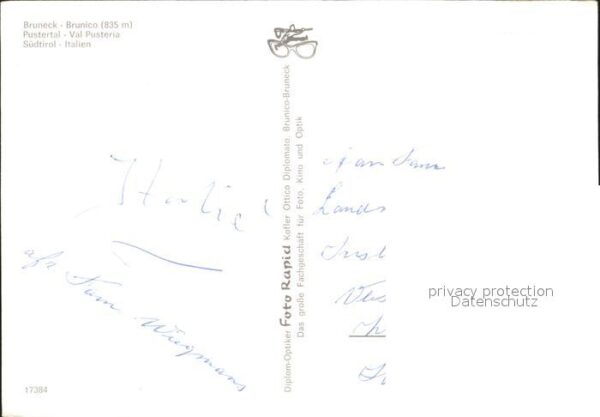 Bruneck - Brunico (835 m)
Pustertal - Val Pusteria
Südtirol - Italien
Italië
afs Fam. Wiegmans
17384
Diplom-Optiker Foto Rapid Kofler Ottico Diplomato, Brunico-Bruneck
Das große Fachgeschäft für Foto, Kino und Optik
Aan Fam
Lands
privacy protection
Datenschutz